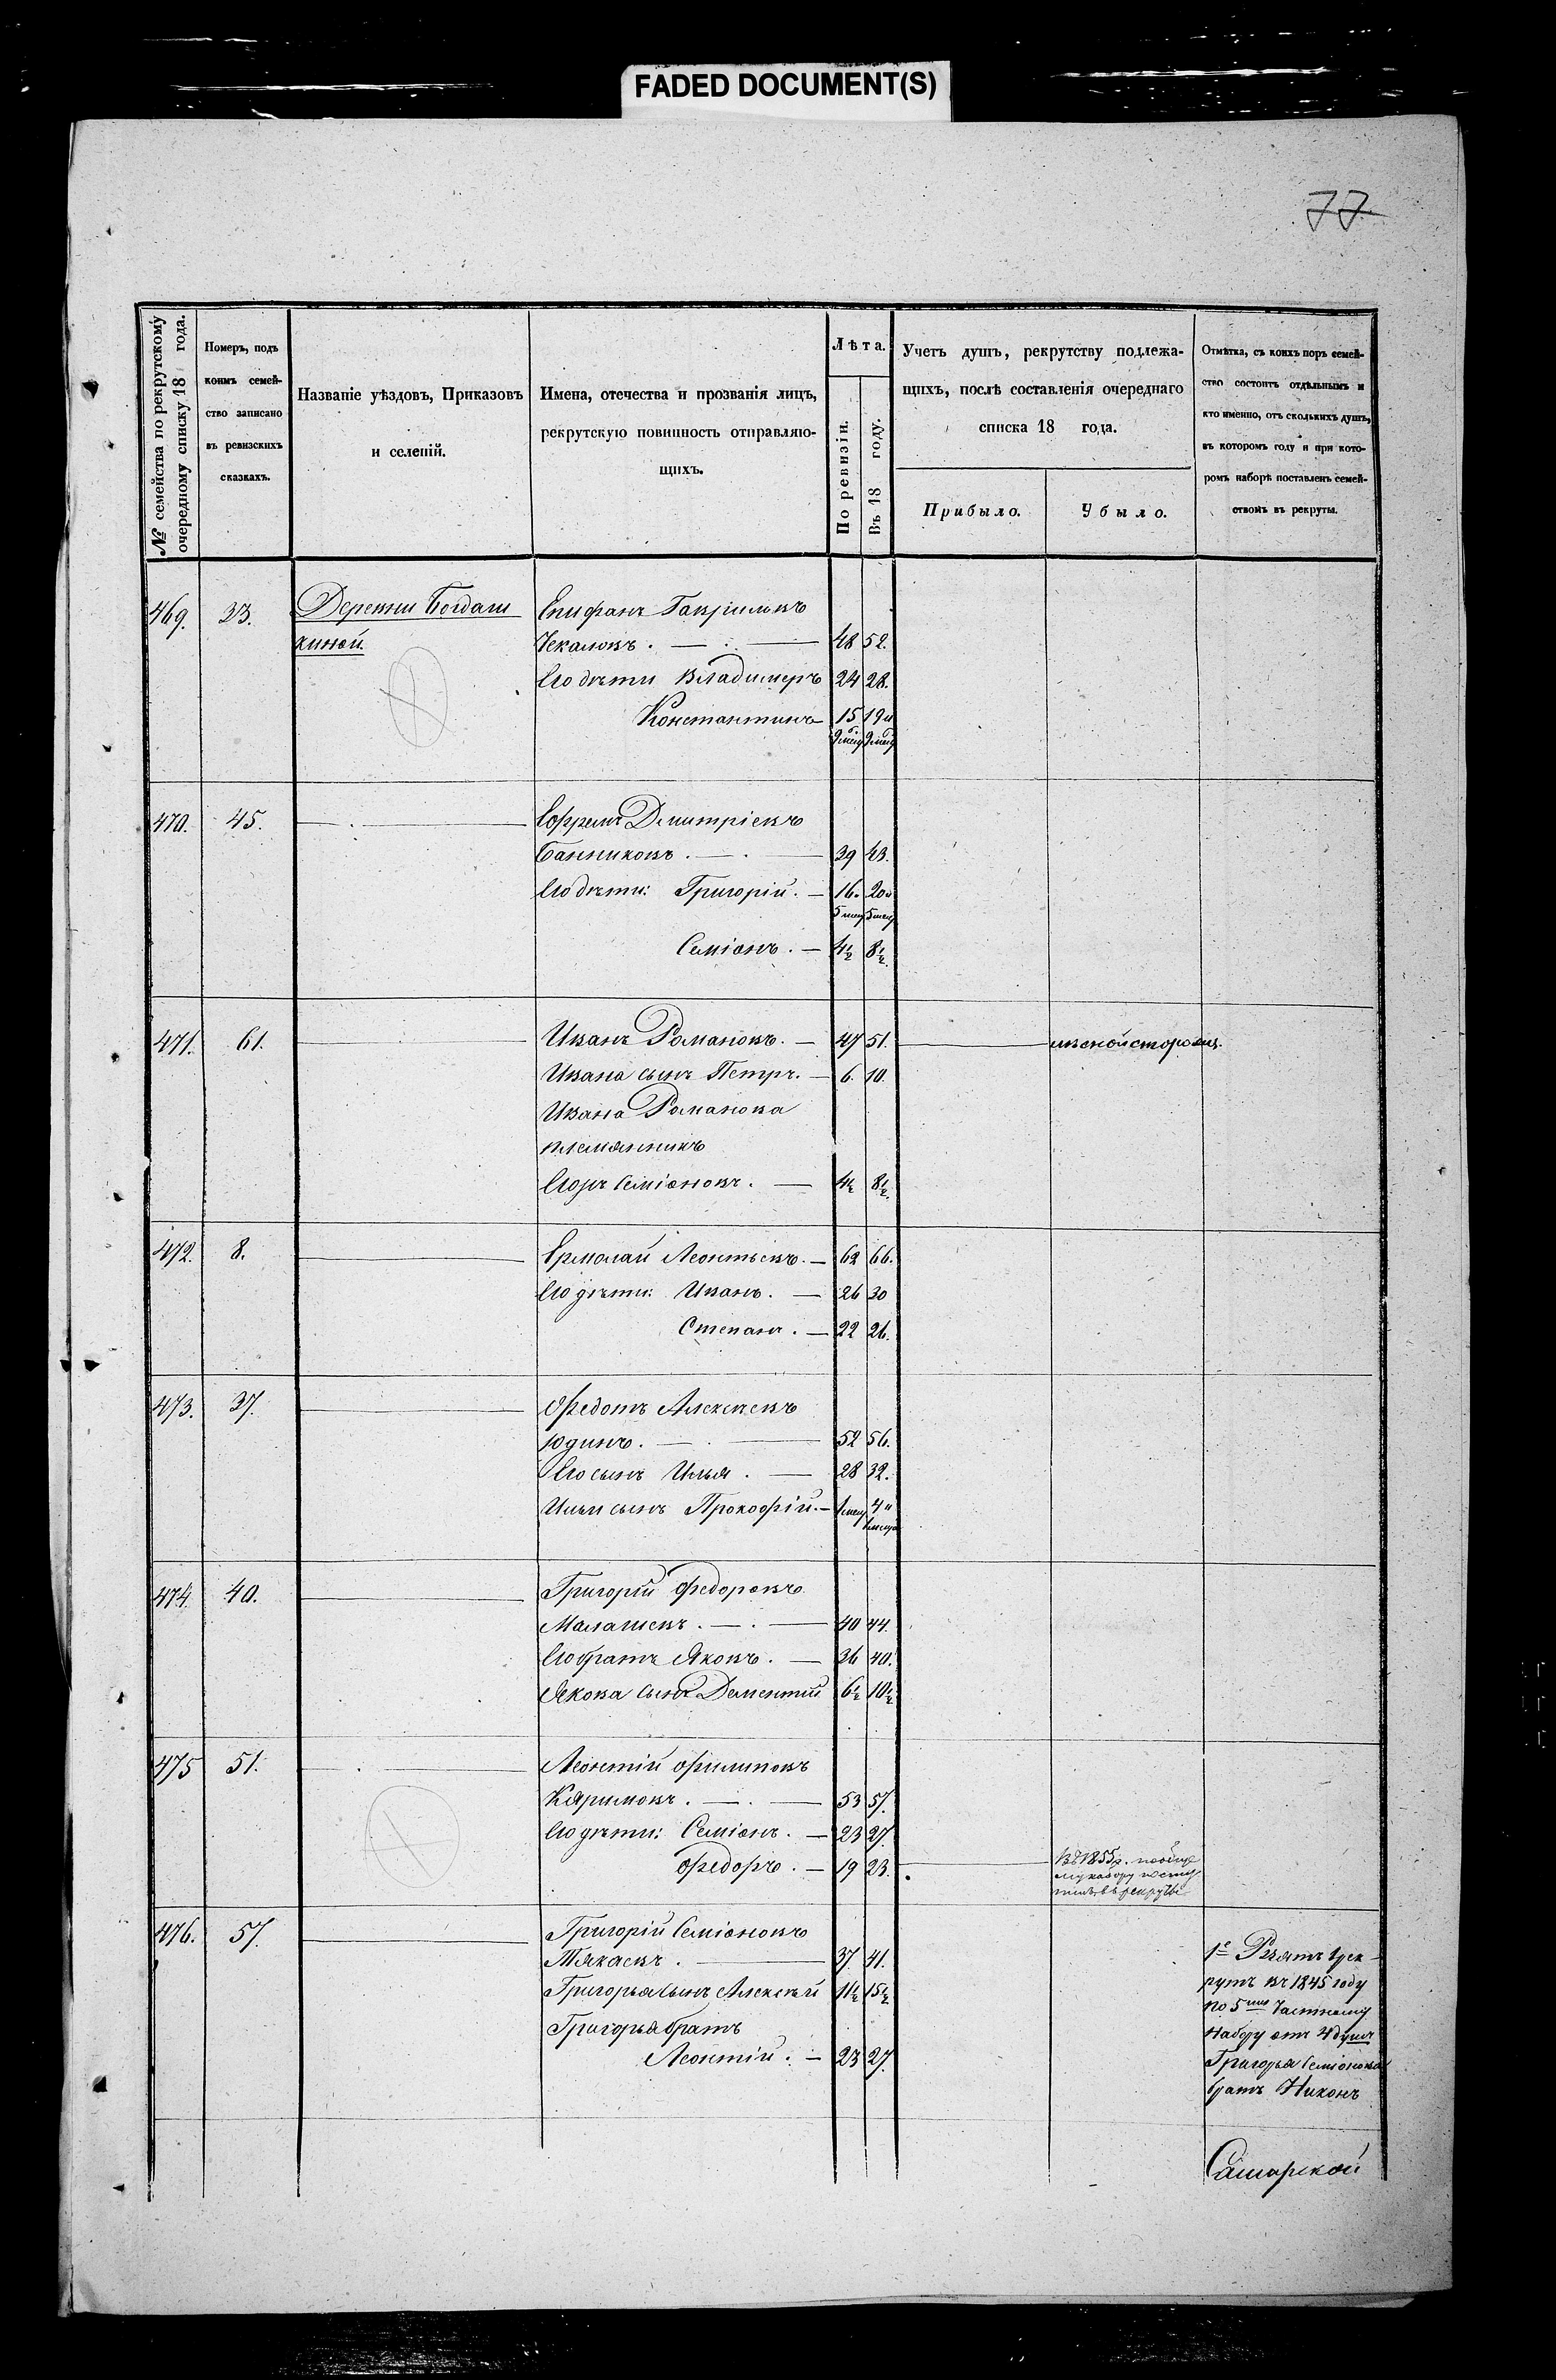 FADED DOCUMENT(S)
77.
№ семейства по рекрутскому
очередному списку 18 года.
Номеръ, подъ
коимъ семей-
ство записано
въ ревизскихъ
сказкахъ.
Названіе уѣздовъ, Приказовъ
и селеній.
Имена, отечества и прозванія лицъ,
рекрутскую повинность отправляю-
щихъ.
Лѣта.
По ревизіи.
Въ 18 году.
Учетъ душъ, рекрутству подлежа-
щихъ, послѣ составленія очереднаго
списка 18 года.
Прибыло.
Убыло.
Отмѣтка, съ коихъ поръ семей-
ство состоитъ отдѣльнымъ и
кто именно, отъ сколькихъ душъ,
въ которомъ году и при кото-
ромъ наборѣ поставленъ семей-
ствомъ въ рекруты.
469. 33. Деревни Богдаш Епифанъ Гавриловъ
киной. Чекаловъ. — 48 52.
Его дѣти Владимеръ 24 28.
Константинъ 15 19 и
9 мец 9 мец
470. 45. — Ефремъ Дмитріевъ
Банниковъ. — 39 43.
Его дѣти: Григорій. — 16. 20 и
5 мец 5 мец
Семіонъ. — 4½ 8½.
471. 61. — Иванъ Романовъ. — 47 51. — лѣсной сторожъ.
Ивана сынъ Петръ. — 6. 10.
Ивана Романова
племянникъ
Егоръ Семіоновъ. — 4½ 8½.
472. 8. — Ермолай Леонтьевъ. — 62 66.
Его дѣти: Иванъ. — 26 30
Степанъ. — 22 26.
473. 37. — Федотъ Алексѣевъ
Юдинъ. — 52 56.
Его сынъ Илья. — 28 32.
Ильи сынъ Прокофій. — 1 мец 4 и
1 мец
474. 40. — Григорій Федоровъ
Малашевъ. — 40 44.
Его братъ Яковъ. — 36 40.
Якова сынъ Дементій 6½ 10½
475 51. — Леонтій Филиповъ
Каримовъ. — 53 57.
Его дѣти: Семіонъ. — 23 27.
Федоръ. — 19 23. — Въ 1855 г. по обще
му набору посту
пилъ въ рекруты
476. 57. — Григорій Семіоновъ
Тякаевъ. — 37 41.
Григорья сынъ Алексѣй 11½ 15½
Григорья братъ
Леонтій. — 23 27.
1е Взятъ врек
рутъ въ 1845 году
по 5му Частному
набору отъ 4 душъ
Григорья Семіонова
братъ Никонъ
Самарской